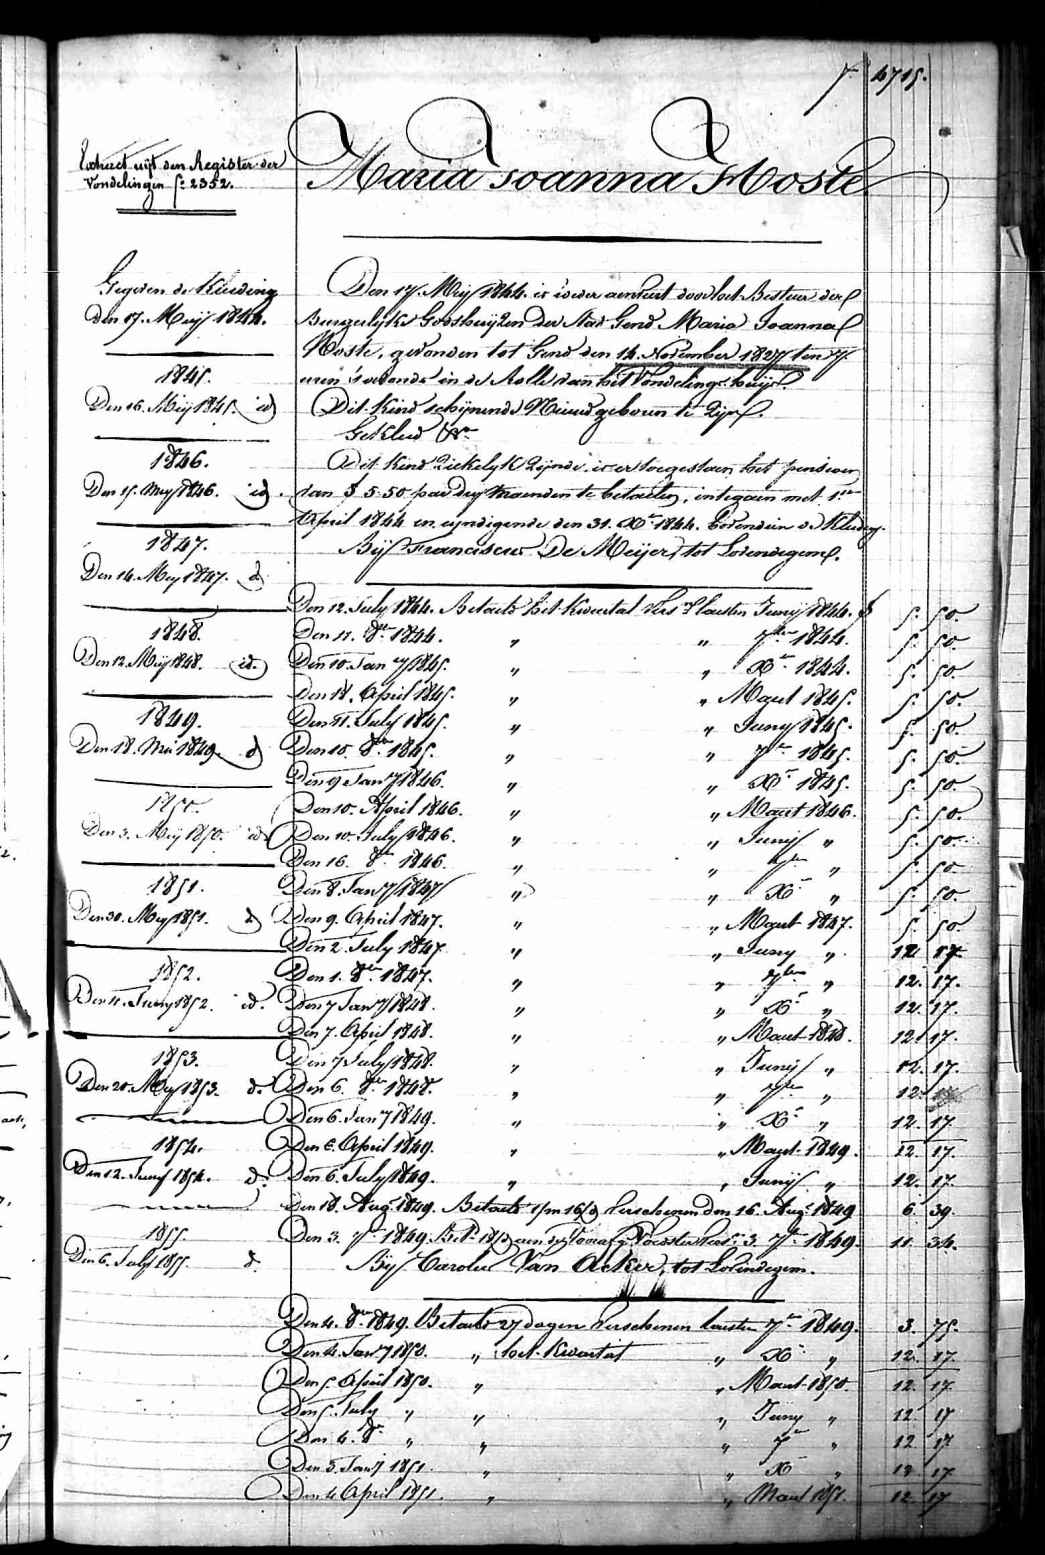 4715.
Extract uijt den Register der
Vondelingen f.º 2352.
Maria Joanna Hoste
Gegeven de Kleeding
den 17. Meij 1844.
1845.
Den 16. Meij 1845. id
1846.
Den 15. Meij 1846. id.
1847.
Den 14. Meij 1847. d.
1848.
Den 12. Meij 1848. id.
1849.
Den 18. Mei 1849. d
1850.
Den 3. Meij 1850. id
1851.
Den 30. Meij 1851. d
1852.
Den 11. Junij 1852. id.
1853.
Den 20. Meij 1853. d.
1854.
Den 12. Junij 1854. d.
1855.
Den 6. Julij 1855. d.
Den 17. Meij 1844. is weder aenveert door het Bestuer der
Burgerlyke Godshuijzen der Stad Gend Maria Joanna
Hoste, gevonden tot Gend den 14. November 1827 ten 7
uren 's avonds in de Rolle van het Vondelingshuijs
Dit Kind schijnende Nieuwgeboren te Zijn.
Gekleed &ª
Dit Kind Ziekelyk Zijnde is er toegestaen het pensioen
van 5.50 par dry maenden te betaelen, ingaen met 1.en
April 1844 en eyndigende den 31. Xbr 1844. bovendien de Kleeding.
Bij Franciscus De Meijer, tot Lovendegem.
Den 12. July 1844. Betaeld het Kwartal vers. laesten Junij 1844. 5. 50.
Den 11. 8br 1844. " " 7ber 1844. 5. 50.
Den 10. Jany 1845. " " Xbr 1844. 5. 50.
Den 18. April 1845. " " Maert 1845. 5. 50.
Den 11. July 1845. " " Juny 1845. 5. 50.
Den 10. 8br 1845. " " 7br 1845. 5. 50.
Den 9 Jany 1846. " " Xbr 1845. 5. 50.
Den 10. April 1846. " " Maert 1846. 5. 50.
Den 10. July 1846. " " Junij " 5. 50.
Den 16. 8br 1846. " " 7ber " 5. 50.
Den 8. Jany 1847 " " Xbr " 5. 50.
Den 9. April 1847. " " Maert 1847. 5. 50
Den 2. July 1847. " " Juny " 12 17
Den 1. 8br 1847. " " 7ber " 12. 17.
Den 7 Jany 1848. " " Xbr " 12. 17.
Den 7. April 1848. " " Maert 1848. 12. 17.
Den 7 July 1848. " " Junij " 12. 17.
Den 6. 8br 1848. " " 7ber " 12. 17
Den 6. Jany 1849. " " Xbr " 12. 17
Den 6. April 1849. " " Maert 1849. 12. 17.
Den 6. July 1849. " " Junij " 12. 17
Den 18. Aug. 1849. Betaeld Verschenen den 16. Aug. 1849 6. 39.
Den 3. 7br 1849. 3. 7br 1849. 11. 34.
Bij Carolus Van Acker, tot Lovendegem.
Den 4. 8br 1849. Betaeld 27 dagen Verschenen laesten 7br 1849. 3. 75.
Den 4. Jany 1850. " het Kwartal " Xbr " 12. 17.
Den 5 April 1850. " " Maert 1850. 12. 17.
Den 5. July " " " Juny " 12. 17
Den 4. 8br " " " 7br " 12 17
Den 3. Jany 1851. " " Xbr " 12 17
Den 4 April 1851. " " Maert 1851. 12. 17